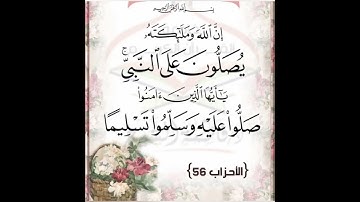 بِسْمِ اللَّهِ الرَّحْمَٰنِ الرَّحِيمِ
إِنَّ ٱللَّهَ وَمَلَٰٓئِكَتَهُۥ
يُصَلُّونَ عَلَى ٱلنَّبِىِّۚ
يَٰٓأَيُّهَا ٱلَّذِينَ ءَامَنُوا۟
صَلُّوا۟ عَلَيْهِ وَسَلِّمُوا۟ تَسْلِيمًا
{الأحزاب 56}